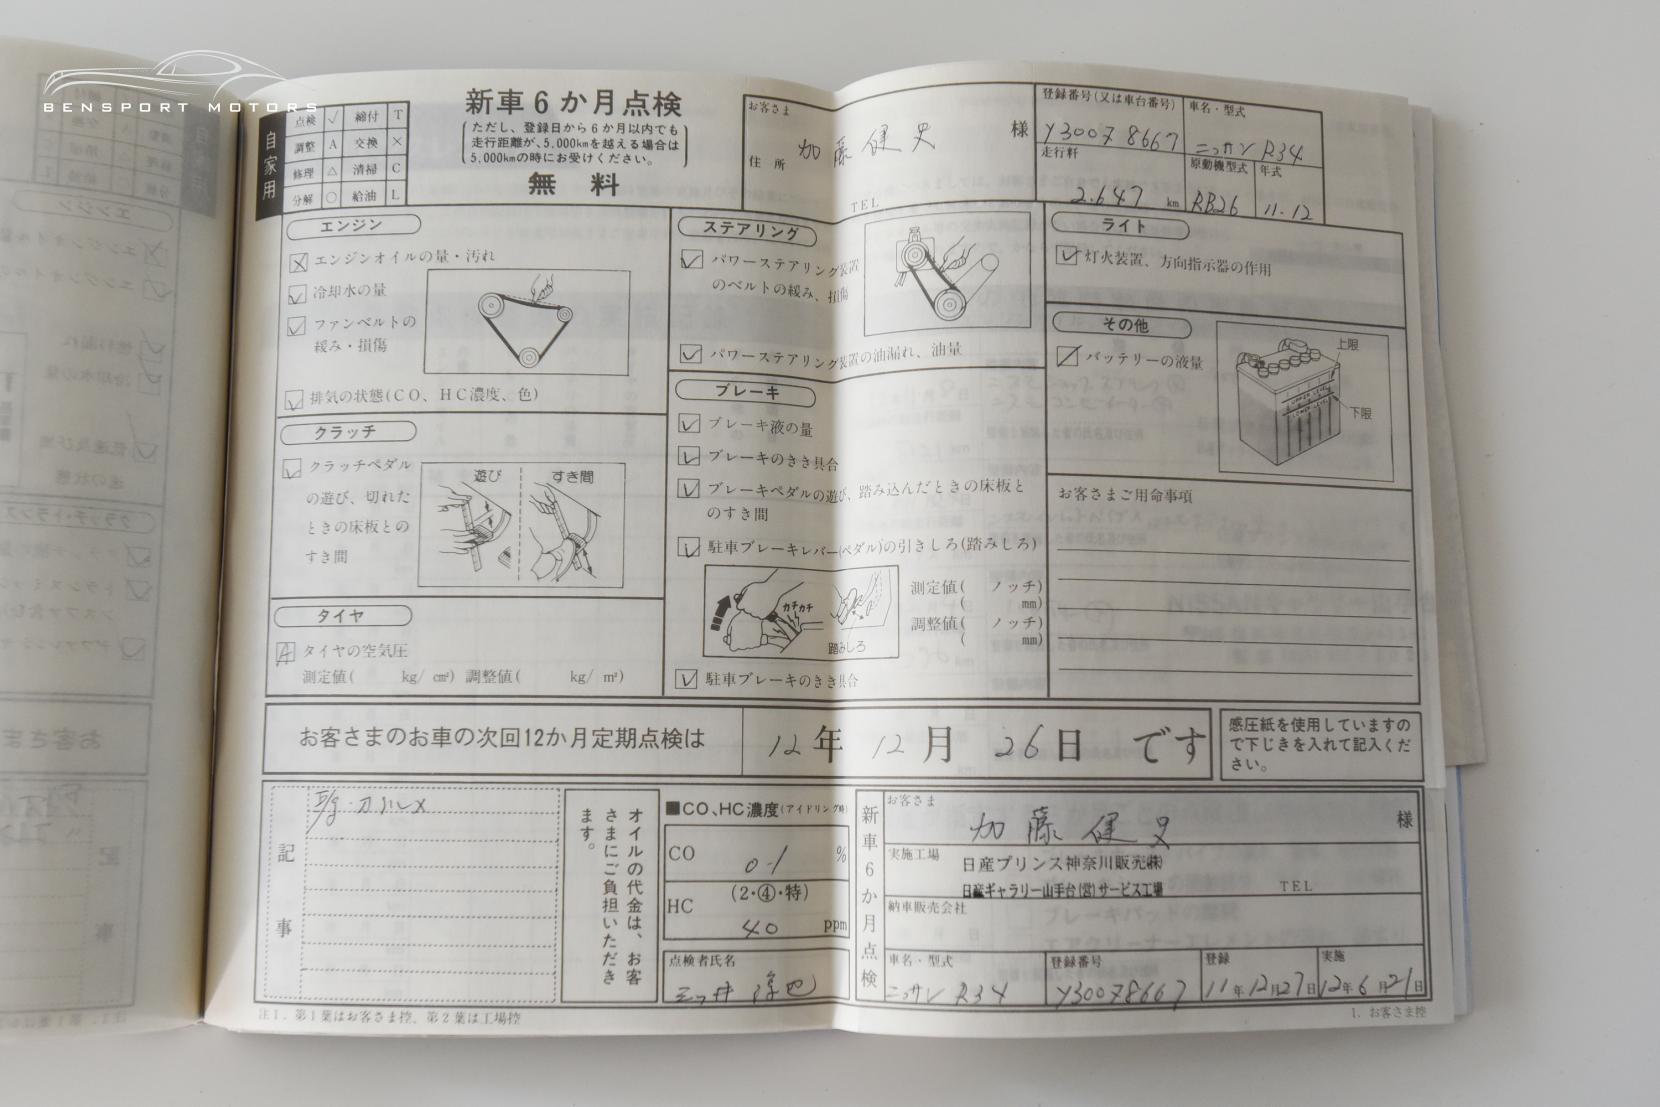 BENSPORT MOTORS
自家用
点検 ✓ 締付 T
調整 A 交換 ×
修理 △ 清掃 C
分解 ○ 給油 L
新車6か月点検
(ただし、登録日から6か月以内でも
走行距離が、5,000kmを越える場合は
5,000kmの時にお受けください。)
無料
お客さま
加藤 健史 様
住所
TEL
登録番号(又は車台番号)
Y30078667
車名・型式
ニッサン R34
走行粁
2.647 km
原動機型式
RB26
年式
11.12
エンジン
エンジンオイルの量・汚れ
冷却水の量
ファンベルトの
緩み・損傷
排気の状態(CO、HC濃度、色)
クラッチ
クラッチペダル
の遊び、切れた
ときの床板との
すき間
遊び すき間
タイヤ
A タイヤの空気圧
測定値( kg/c㎡) 調整値( kg/㎡)
ステアリング
パワーステアリング装置
のベルトの緩み、損傷
パワーステアリング装置の油漏れ、油量
ブレーキ
ブレーキ液の量
ブレーキのきき具合
ブレーキペダルの遊び、踏み込んだときの床板と
のすき間
駐車ブレーキレバー(ペダル)の引きしろ(踏みしろ)
カチカチ
踏みしろ
測定値( ノッチ)
( mm)
調整値( ノッチ)
( mm)
駐車ブレーキのきき具合
ライト
灯火装置、方向指示器の作用
その他
バッテリーの液量
上限
UPPER LEVEL
LOWER LEVEL
下限
お客さまご用命事項
お客さまのお車の次回12か月定期点検は 12年 12月 26日 です
感圧紙を使用していますの
で下じきを入れて記入くだ
さい。
記事
E/g オイル ×
オイルの代金は、お客
さまにご負担いただき
ます。
■CO、HC濃度(アイドリング時)
CO 0.1 %
(2・④・特)
HC 40 ppm
点検者氏名
新車6か月点検
お客さま
加藤 健史 様
実施工場
日産プリンス神奈川販売㈱
日産ギャラリー山手台(営)サービス工場
TEL
納車販売会社
車名・型式
ニッサン R34
登録番号
Y30078667
登録
11年12月27日
実施
12年6月21日
注1.第1葉はお客さま控、第2葉は工場控
1.お客さま控